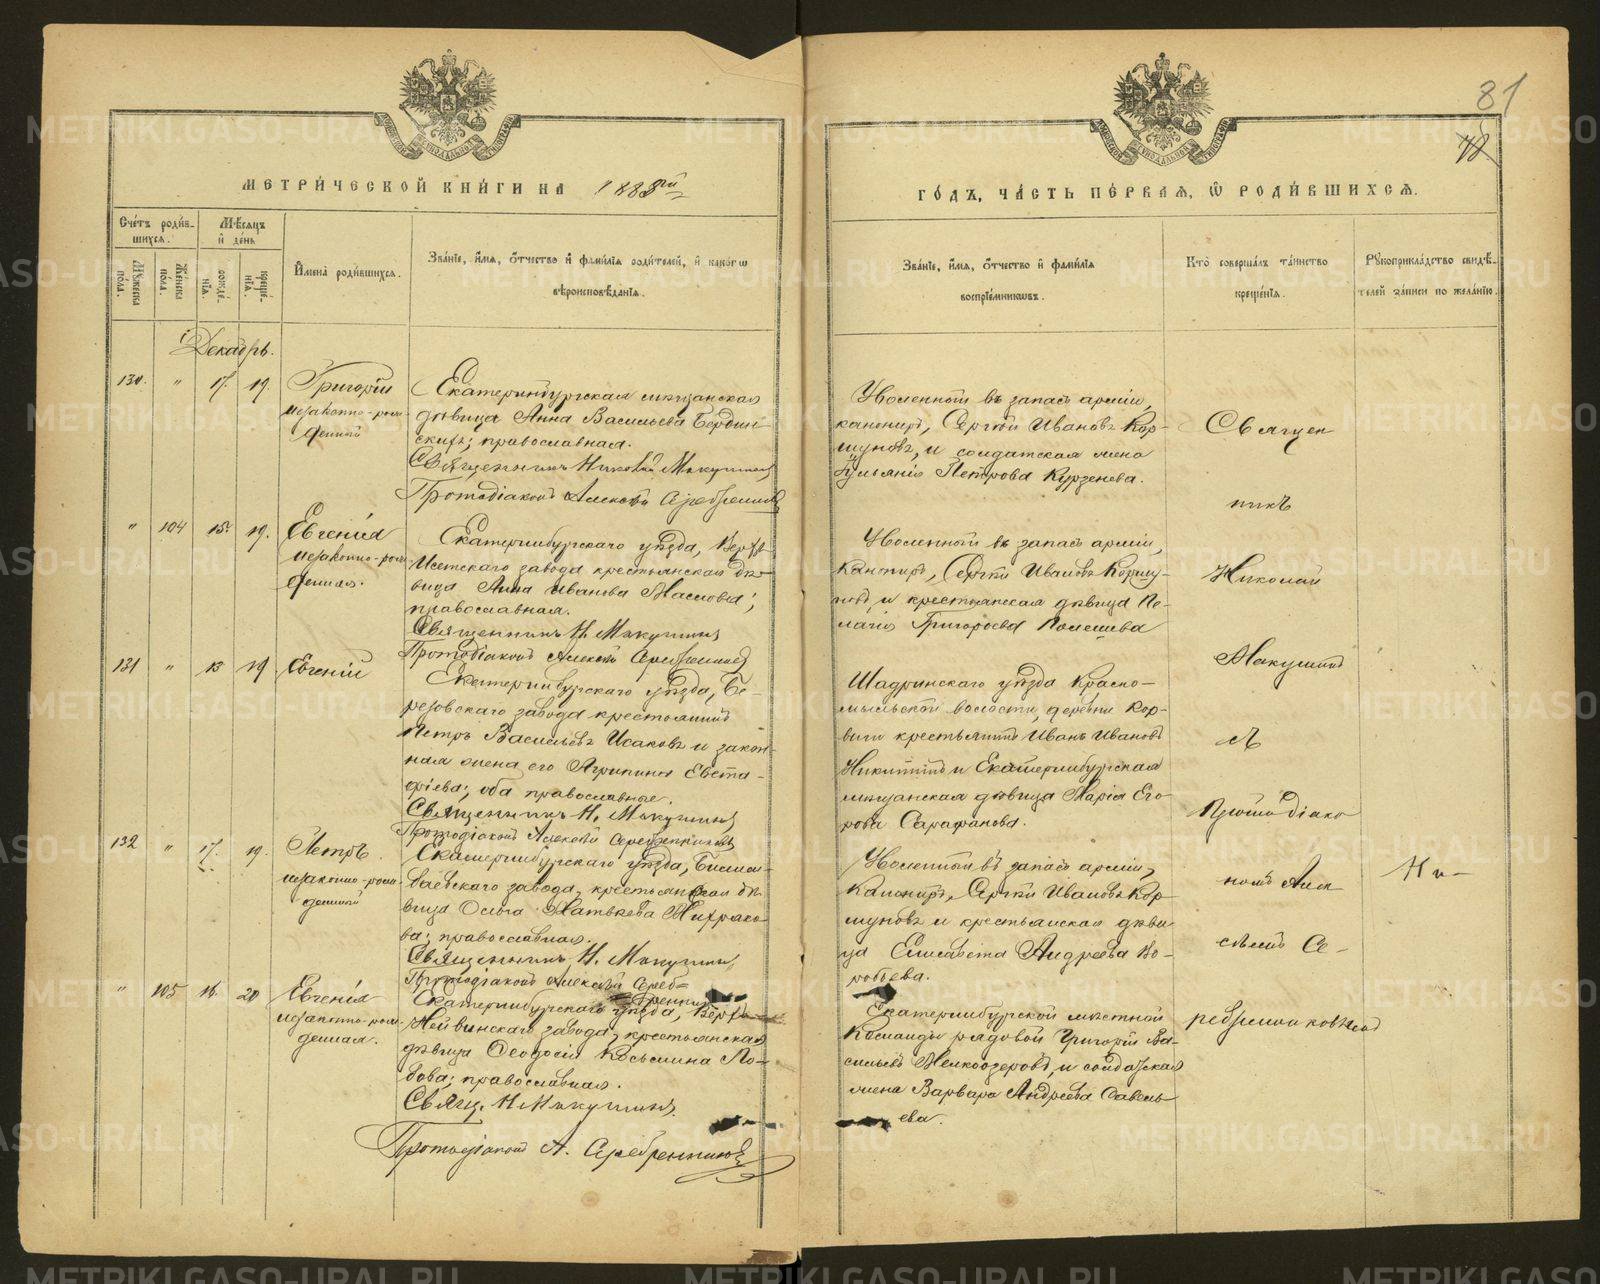 81
78
МЕТРИ́ЧЕСКОЙ КНИ́ГИ НА 1888й
ГО́ДЪ, ЧА́СТЬ ПЕ́РВАѦ, Ѡ҆ РОДИ́ВШИХСѦ.
Сче́тъ роди́в-
шихсѧ.
Мѣ́сѧцъ
и҆ де́нь
Мꙋ́жеска
пола.
Же́нска
по́ла.
рожде́-
нїѧ.
креще́-
нїѧ.
И҆мена̀ роди́вшихсѧ.
Зва́нїе, и҆́мѧ, ѻ҆́тчество и҆ фами́лїѧ роди́телей, и҆ како́гѡ
вѣроисповѣ́данїѧ.
Зва́нїе, и҆́мѧ, ѻ҆́тчество и҆ фами́лїѧ
воспрїе́мникѡвъ.
Кто̀ соверша́лъ та́инство
креще́нїѧ.
Рꙋкоприкла́дство свидѣ́-
телей за́писи по жела́нїю.
Декабрь.
130. " 17. 19. Григорій
незаконно-рож-
денный
Екатеринбургская мѣщанская
дѣвица Анна Васильева Бердин-
скихъ; православная.
Священникъ Николай Макушинъ
Протодіаконъ Алексѣй Серебренниковъ
Уволенный въ запасъ арміи,
канониръ, Сергѣй Ивановъ Кор-
шуновъ, и солдатская жена
Ульянія Петрова Курзенева.
" 104 15. 19. Евгенія
незаконно-рож-
денная.
Екатеринбургскаго уѣзда, Верхъ-
Исетскаго завода крестьянская дѣ-
вица Анна Иванова Маслова;
православная.
Священникъ Н. Макушинъ
Протодіаконъ Алексѣй Серебренниковъ
Уволенный въ запасъ арміи,
Канониръ, Сергѣй Ивановъ Коршу-
новъ, и крестьянская дѣвица Пе-
лагія Григорьева
131 " 13 19 Евгеній
Екатеринбургскаго уѣзда, Бе-
резовскаго завода крестьянинъ
Петръ Васильевъ Исаковъ и закон-
ная жена его Агрипина Евста-
фіева; оба православные.
Священникъ Н. Макушинъ
Протодіаконъ Алексѣй Серебренниковъ
Шадринскаго уѣзда Красно-
мыльской волости, деревни
крестьянинъ Иванъ Ивановъ
Никитинъ и Екатеринбургская
мѣщанская дѣвица Марія Его-
рова Сарафанова.
132 " 17. 19. Петръ.
незаконно-рож-
денный
Екатеринбургскаго уѣзда, Билим-
баевскаго завода, крестьянская дѣ-
вица Ольга Матвѣева
православная.
Священникъ Н. Макушинъ
Протодіаконъ Алексѣй Сереб=
ренниковъ
Уволенный въ запасъ арміи,
Канониръ, Сергѣй Ивановъ Кор-
шуновъ и крестьянская дѣви-
ца Елисавета Андреева Во-
робьева.
" 105 16. 20 Евгенія
незаконно-рож-
денная.
Екатеринбургскаго уѣзда, Верхъ-
Нейвинскаго завода, крестьянская
дѣвица Ѳеодосія Косьмина Ло-
бова; православная.
Свящ. Н Макушинъ.
Протодіаконъ А. Серебренниковъ
Екатеринбургской мѣстной
Команды рядовой Григорій Ва-
сильевъ Мелкоозеровъ, и солдатская
жена Варвара Андреева Савель-
ева.
Священ
никъ
Николай
Макушинъ
съ
Протодіако
номъ Алек
сѣемъ Се-
ребренниковымъ
Ни-